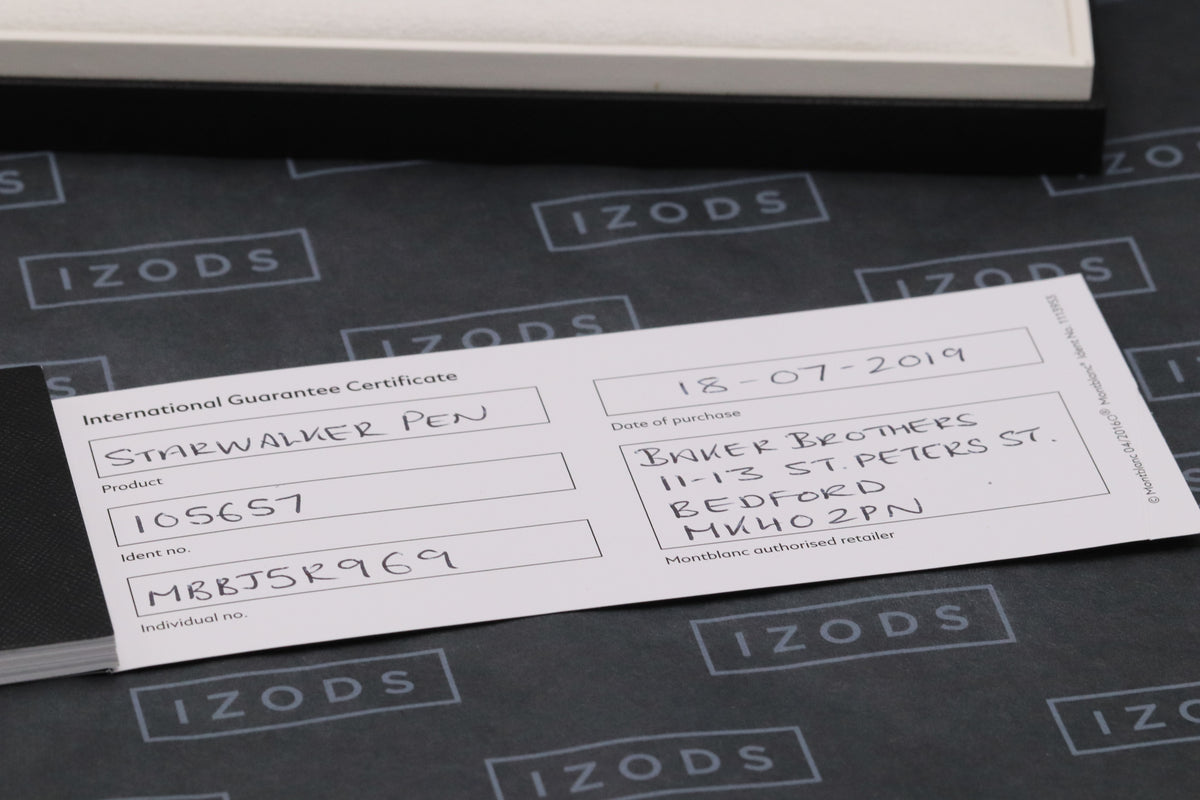 IZODS
IZODS
IZODS
IZODS
IZODS
International Guarantee Certificate
STARWALKER PEN
Product
105657
Ident no.
MBBJ5R969
Individual no.
18-07-2019
Date of purchase
BAKER BROTHERS
11-13 ST. PETERS ST.
BEDFORD
MK40 2PN
Montblanc authorised retailer
© Montblanc 04/2016 ® Montblanc® Ident No. 1113953
IZODS
IZODS
IZODS